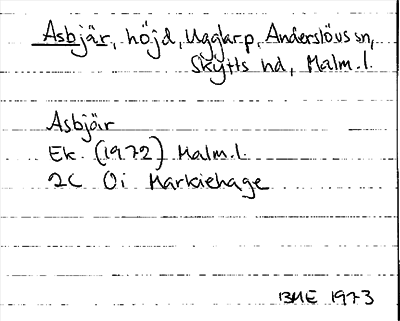 Asbjär, höjd, Ugglarp, Anderslövs sn,
Skytts hd, Malm.l.
Asbjär
Ek. (1972) Malm.l.
2C 0i Markiehage
BME 1973